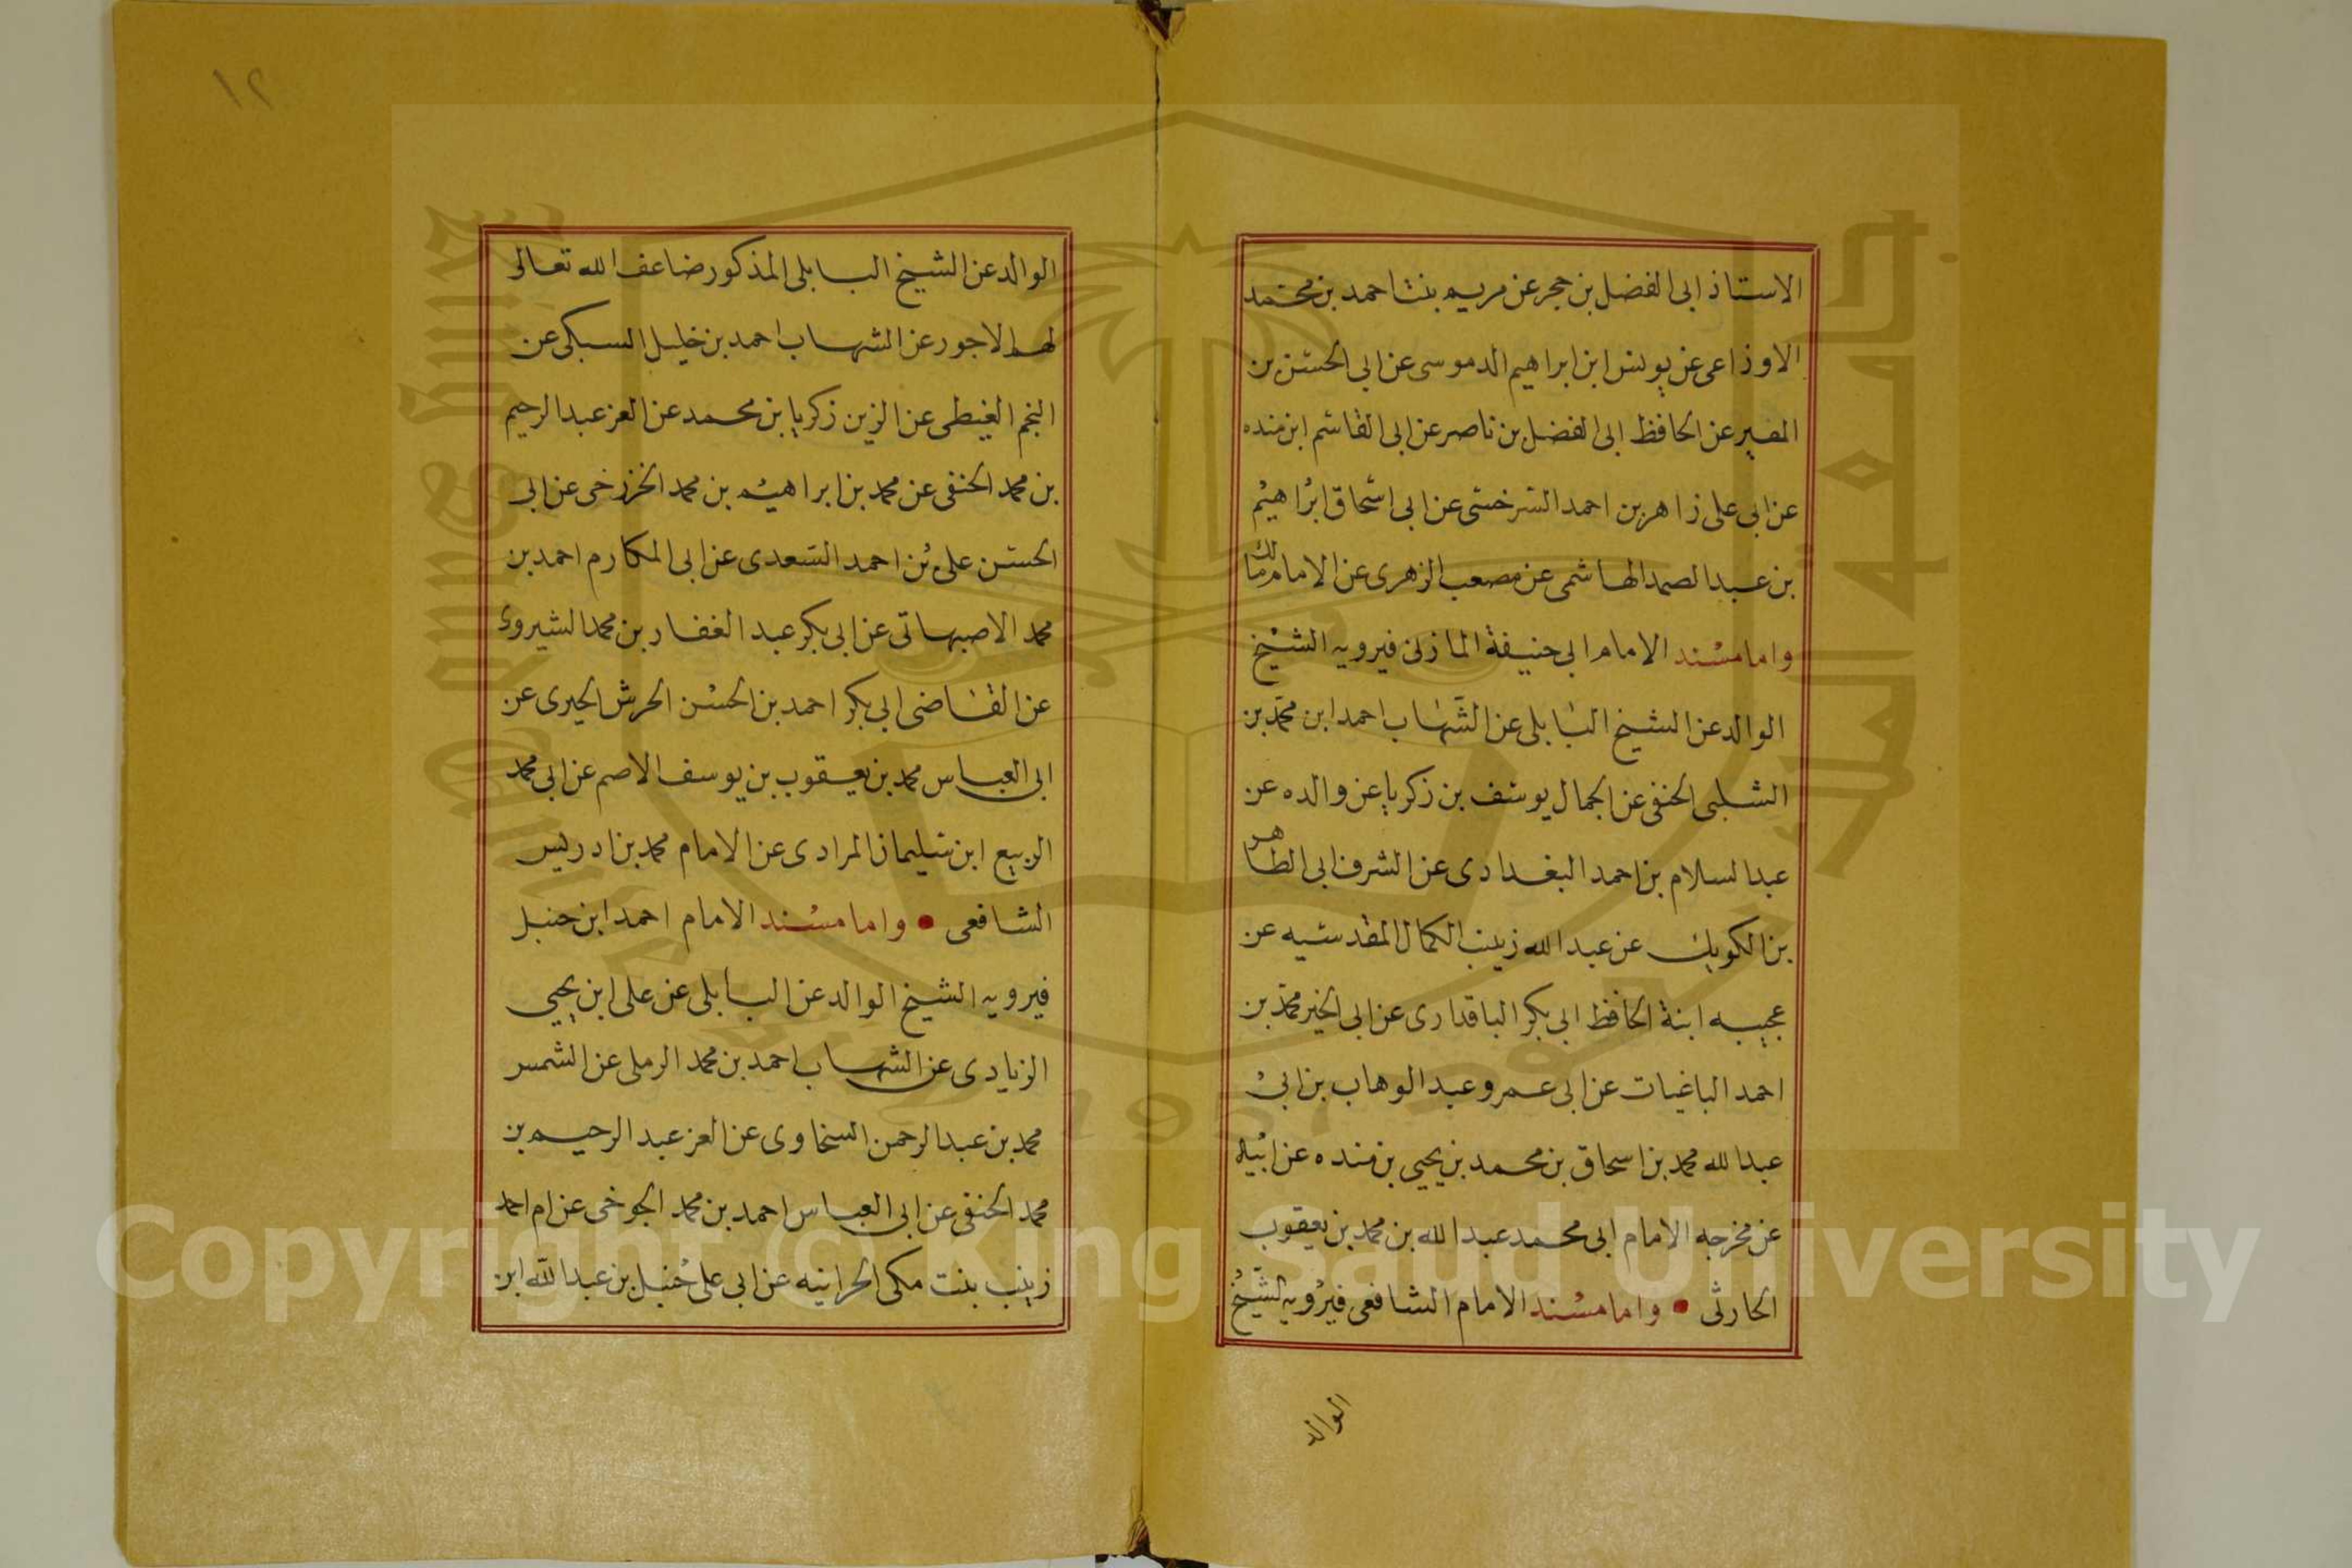 الاستاذ ابى الفضل بن حجر عن مريم بنت احمد بن محمد
الاوزاعى عن يونس ابن ابراهيم الدموسى عن ابى الحسن بن
المقير عن الحافظ ابى الفضل بن ناصر عن ابى القاسم ابن منده
عن ابى على زاهر بن احمد السرخسى عن ابى اسحاق ابراهيم
بن عبد الصمد الهاشمى عن مصعب الزهرى عن الامام مالك
واما مسند الامام ابى حنيفة المازنى فيرويه الشيخ
الوالد عن الشيخ البابلى عن الشهاب احمد ابن محمد بن
الشلبى الحنفى عن الجمال يوسف بن زكريا عن والده عن
عبد السلام بن احمد البغدادى عن الشرف ابى الطاهر
بن الكويك عن عبد الله زينب الكمال المقدسيه عن
عجيبه ابنة الحافظ ابى بكر الباقدارى عن ابى الخير محمد بن
احمد الباغيات عن ابى عمرو عبد الوهاب بن ابى
عبد الله محمد بن اسحاق بن محمد بن يحيى بن منده عن ابيه
عن مخرجه الامام ابى محمد عبد الله بن محمد بن يعقوب
الحارثى • واما مسند الامام الشافعى فيرويه الشيخ
الوالد
١٢
الوالد عن الشيخ البابلى المذكور ضاعف الله تعالى
لهم الاجور عن الشهاب احمد بن خليل السبكى عن
النجم الغيطى عن الزين زكريا بن محمد عن العز عبد الرحيم
بن محمد الحنفى عن محمد بن ابراهيم بن محمد الخزرخى عن ابى
الحسن على بن احمد السعدى عن ابى المكارم احمد بن
محمد الاصبهاتى عن ابى بكر عبد الغفار بن محمد الشيروى
عن القاضى ابى بكر احمد بن الحسن الحرش الحيرى عن
ابى العباس محمد بن يعقوب بن يوسف الاصم عن ابى محمد
الربيع ابن سليمان المرادى عن الامام محمد بن ادريس
الشافعى • واما مسند الامام احمد ابن حنبل
فيرويه الشيخ الوالد عن البابلى عن على ابن يحيى
الزيادى عن الشهاب احمد بن محمد الرملى عن الشمس
محمد بن عبد الرحمن السخاوى عن العز عبد الرحيم بن
محمد الحنفى عن ابى العباس احمد بن محمد الجوخى عن ام احمد
زينب بنت مكى الحرانيه عن ابى على حنبل بن عبد الله ابن
Copyright © King Saud University
1957